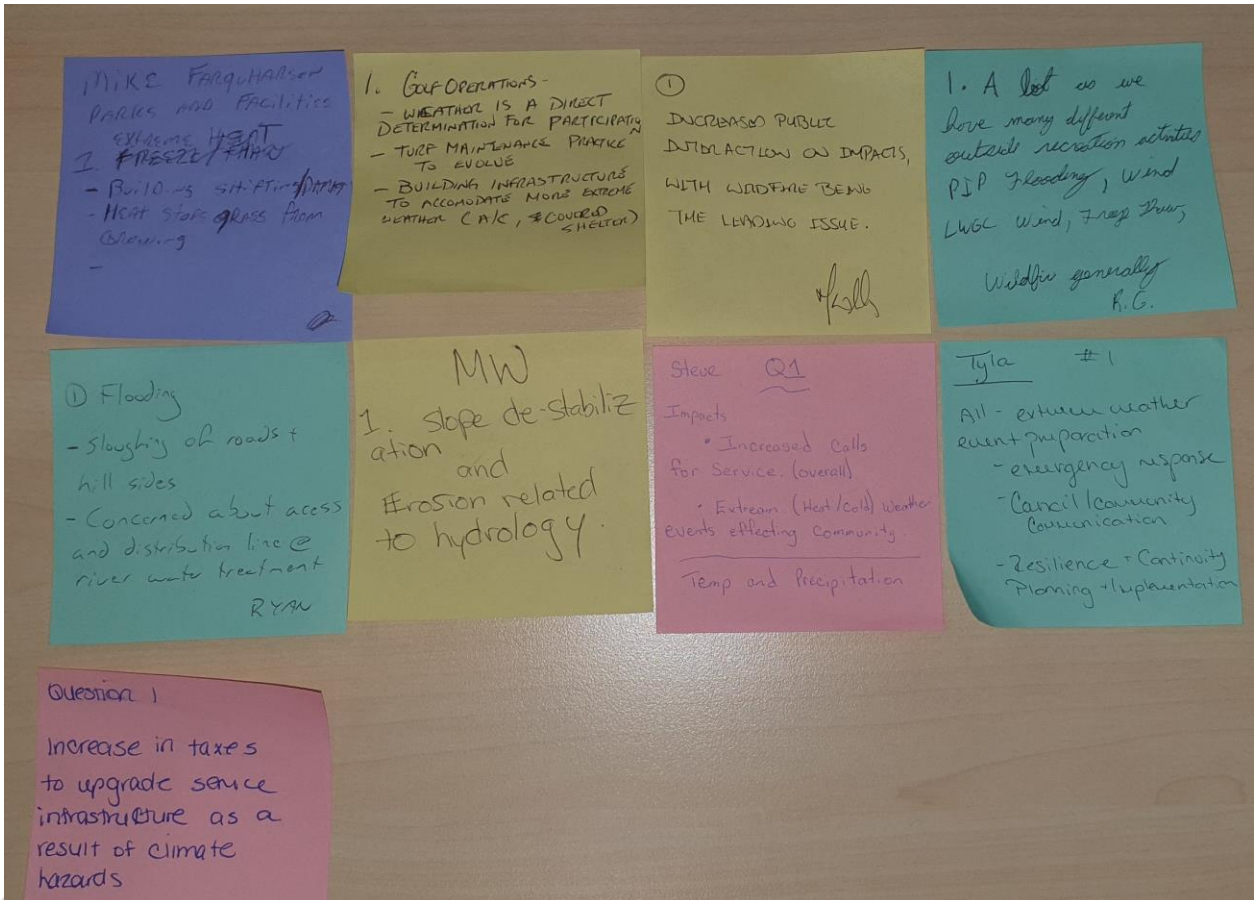 MIKE FARQUHARSON
PARKS AND FACILITIES
EXTREME HEAT
1. FREEZE/THAW
- BUILDING SHIFTING/
- HEAT STOPS GRASS FROM
GROWING
-
1. GOLF OPERATIONS -
- WEATHER IS A DIRECT
DETERMINATION FOR PARTICIPATION
- TURF MAINTENANCE PRACTICE
TO EVOLVE
- BUILDING INFRASTRUCTURE
TO ACCOMODATE MORE EXTREME
WEATHER (A/C, COVERED
SHELTER)
①
INCREASED PUBLIC
INTERACTION ON IMPACTS,
WITH WILDFIRE BEING
THE LEADING ISSUE.
1. A lot as we
have many different
outside recreation activities
PIP Flooding, Wind
LWGC Wind, Freeze Thaw,
Wildfire generally
R.G.
① Flooding
- Sloughing of roads +
hill sides
- Concerned about acess
and distribution line @
river water treatment
RYAN
MW
1. Slope de-stabiliz
ation
and
Erosion related
to hydrology.
Steve Q1
Impacts
• Increased Calls
for Service. (overall)
• Extream (Heat/Cold) weather
events effecting Community.
Temp and Precipitation
Tyla #1
All - extreme weather
event preparation
- emergency response
- Council/community
Communication
- Resilience + Continuity
Planning + Implementation
Question 1
Increase in taxes
to upgrade service
infrastructure as a
result of climate
hazards